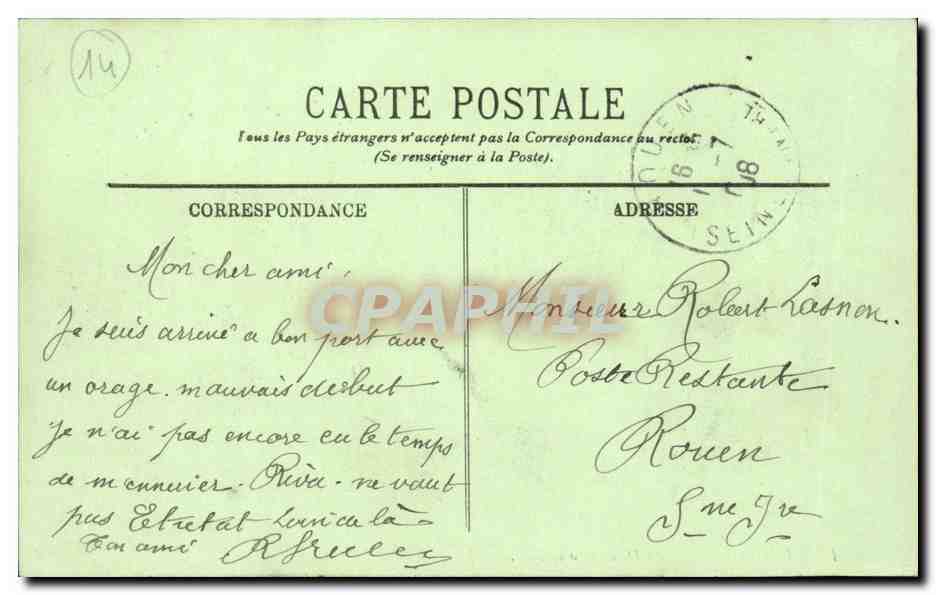 14
CARTE POSTALE
Tous les Pays étrangers n'acceptent pas la Correspondance au recto.
(Se renseigner à la Poste).
CORRESPONDANCE
Mon cher ami,
Je suis arrivé a bon port avec
un orage. mauvais debut
Je n'ai pas encore eu le temps
de m'ennuier. Riva. ne vaut
pas Etretat Loin de là
Ton ami
ADRESSE
Monsieur Robert Lasnon.
Poste Restante
Rouen
Sne Ire
ROUEN
16 7
08
SEINE
CPAPHIL